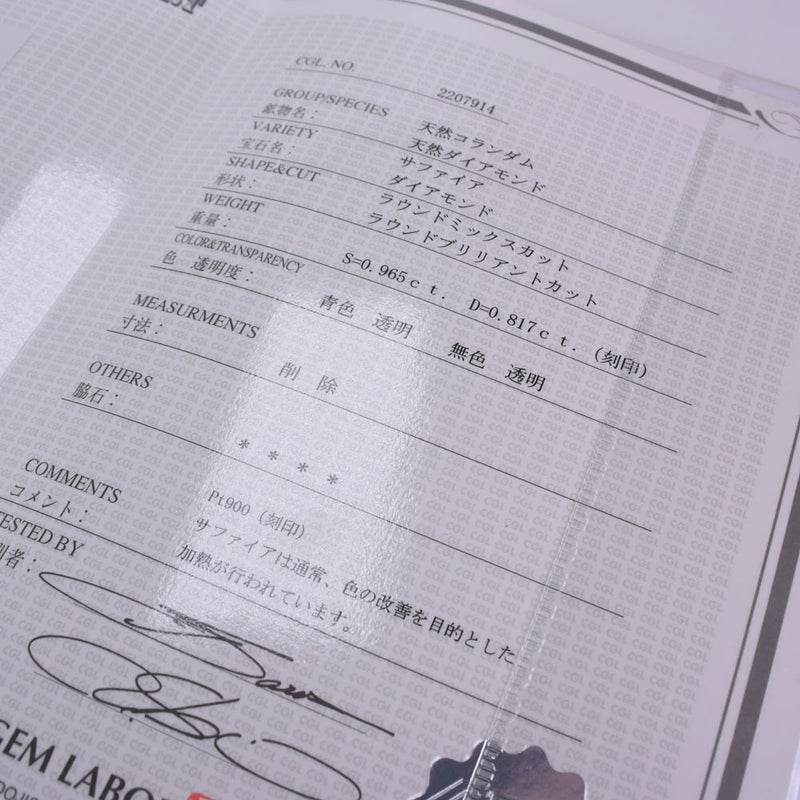 CGL. NO. 2207914
GROUP/SPECIES 天然コランダム
鉱物名： 天然ダイアモンド
VARIETY サファイア
宝石名： ダイアモンド
SHAPE&CUT ラウンドミックスカット
形状： ラウンドブリリアントカット
WEIGHT
重量： S=0.965ct. D=0.817ct.（刻印）
COLOR&TRANSPARENCY
色 透明度： 青色 透明 無色 透明
MEASURMENTS
寸法： 削 除
OTHERS
脇石： ＊ ＊ ＊ ＊
COMMENTS Pt900（刻印）
コメント： サファイアは通常、色の改善を目的とした
加熱が行われています。
TESTED BY
別者：
GEM LABOR